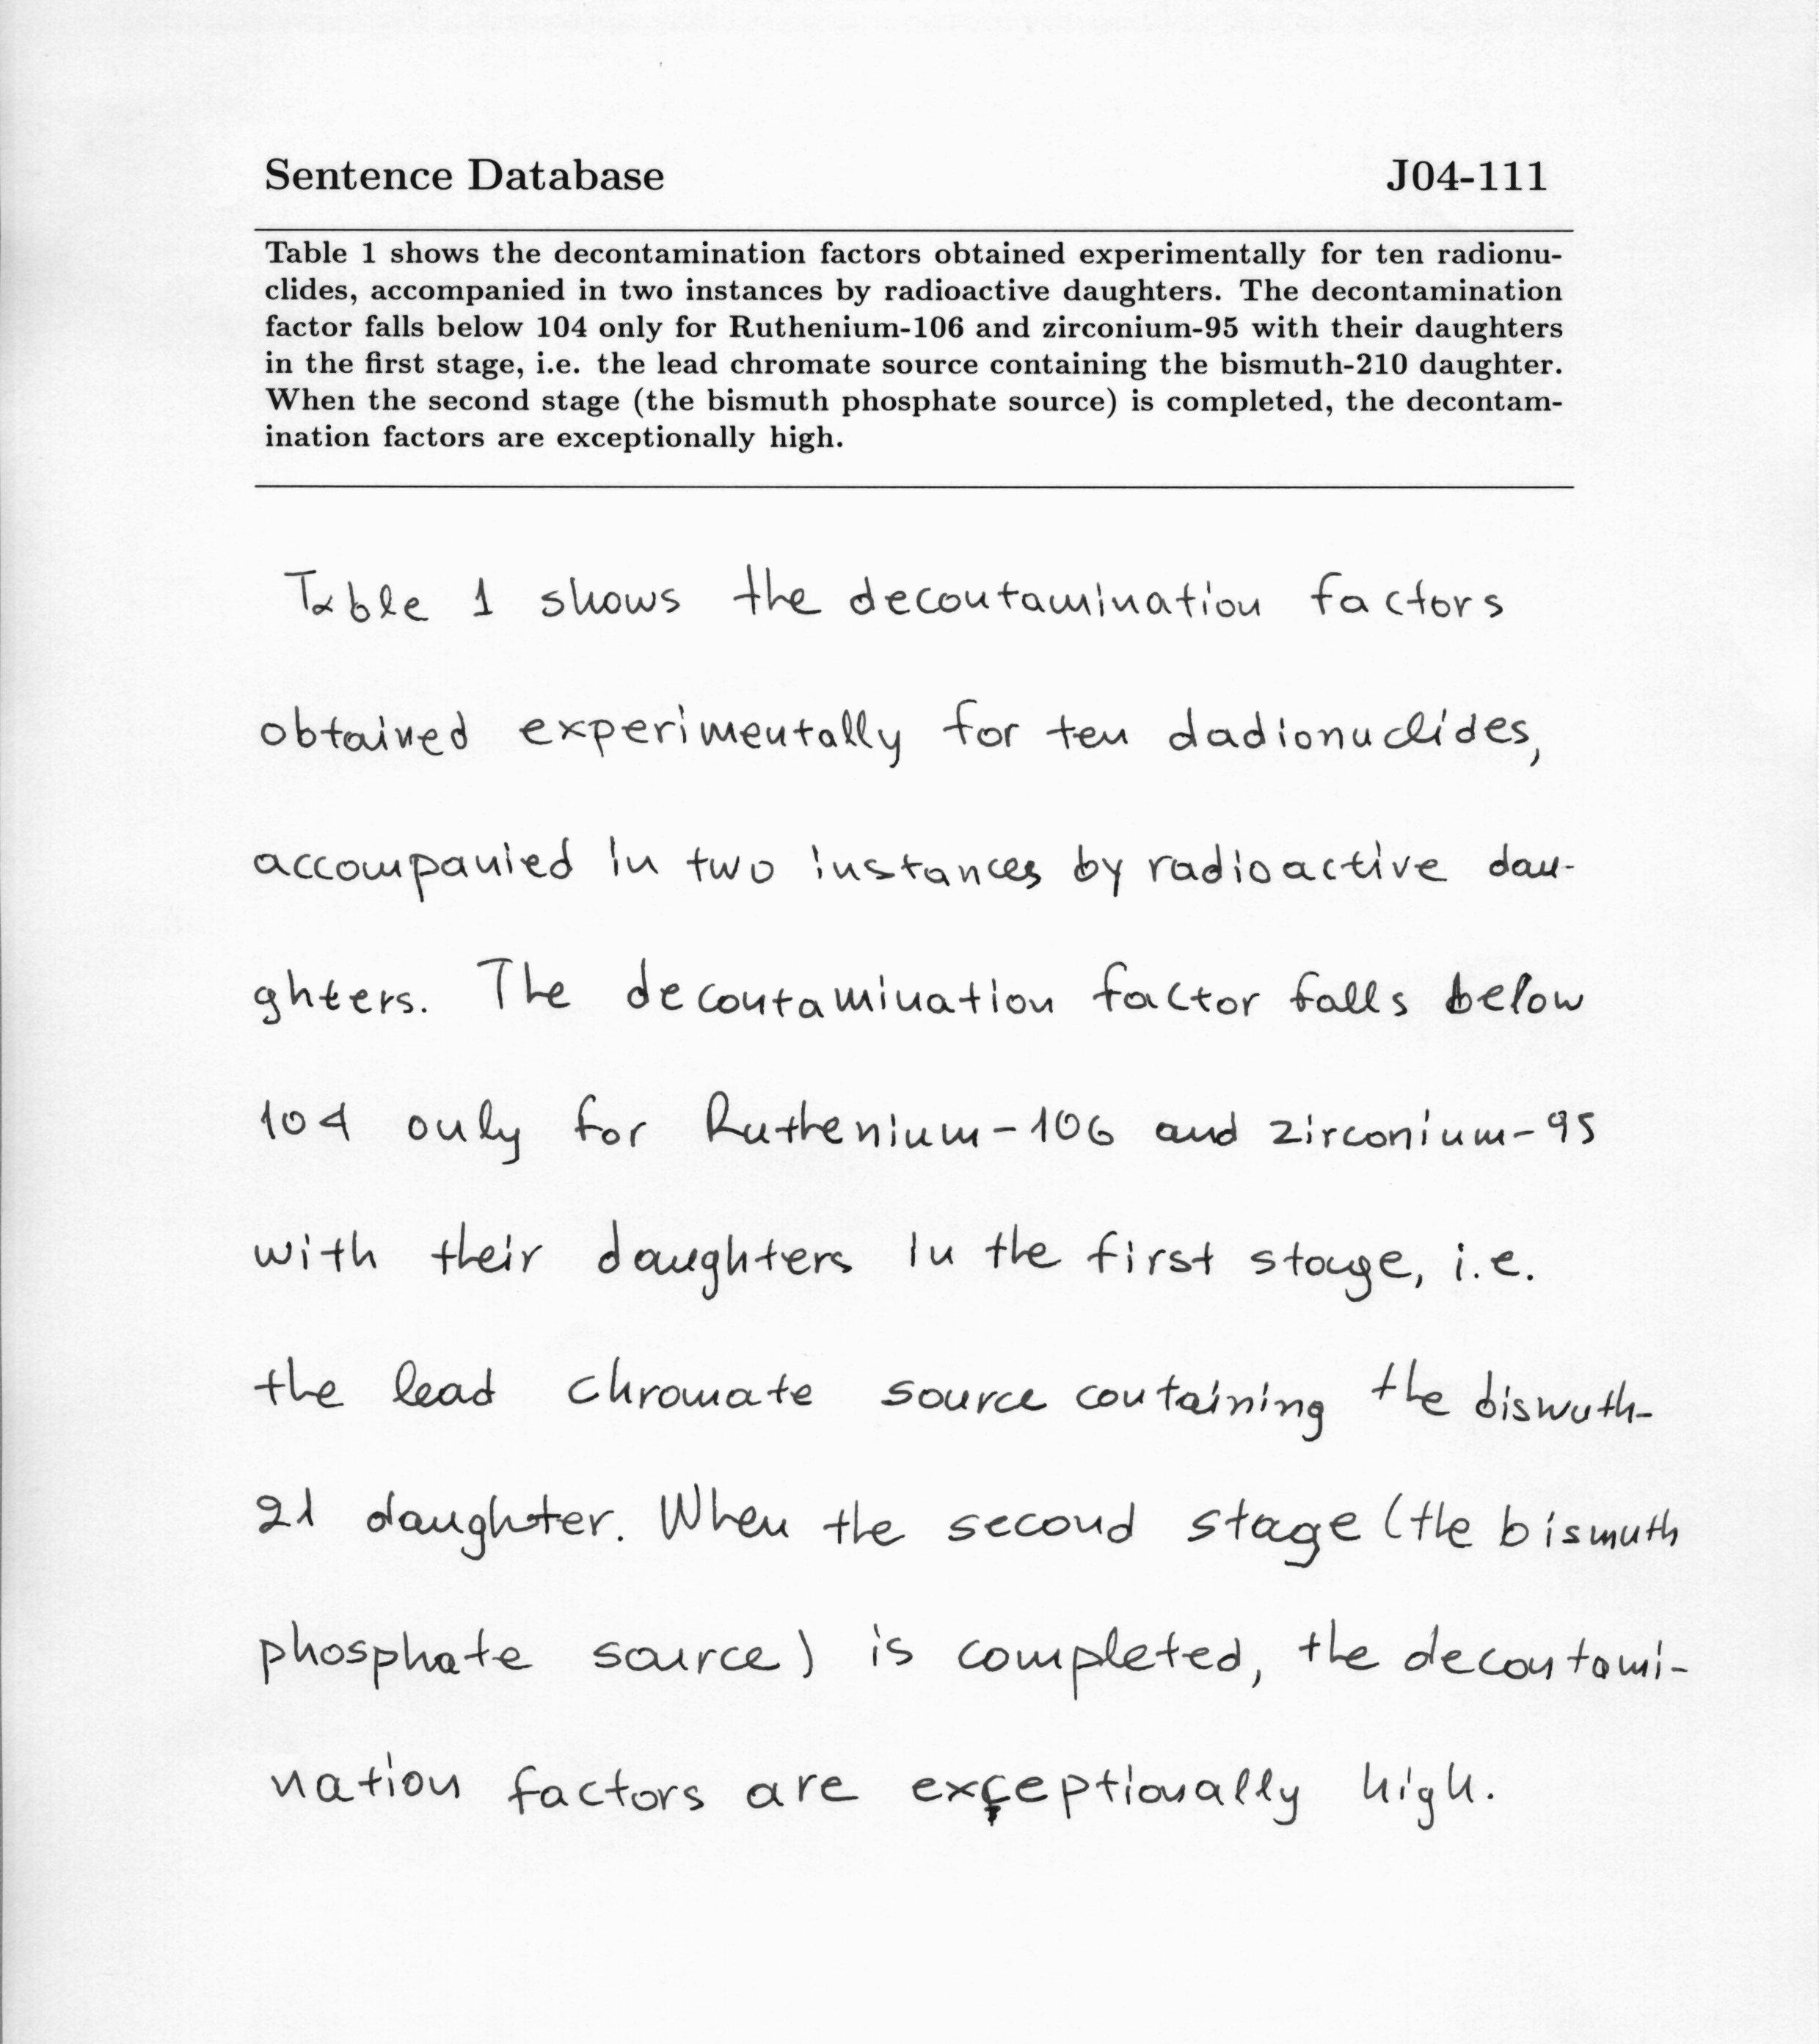 Sentence Database J04-111
Table 1 shows the decontamination factors obtained experimentally for ten radionu-
clides, accompanied in two instances by radioactive daughters. The decontamination
factor falls below 104 only for Ruthenium-106 and zirconium-95 with their daughters
in the first stage, i.e. the lead chromate source containing the bismuth-210 daughter.
When the second stage (the bismuth phosphate source) is completed, the decontam-
ination factors are exceptionally high.
Table 1 shows the decontamination factors
obtained experimentally for ten dadionuclides,
accompanied in two instances by radioactive dau-
ghters. The decontamination factor falls below
104 only for Ruthenium-106 and zirconium-95
with their daughters in the first stage, i.e.
the lead chromate source containing the bismuth-
21 daughter. When the second stage (the bismuth
phosphate source) is completed, the decontami-
nation factors are exceptionally high.